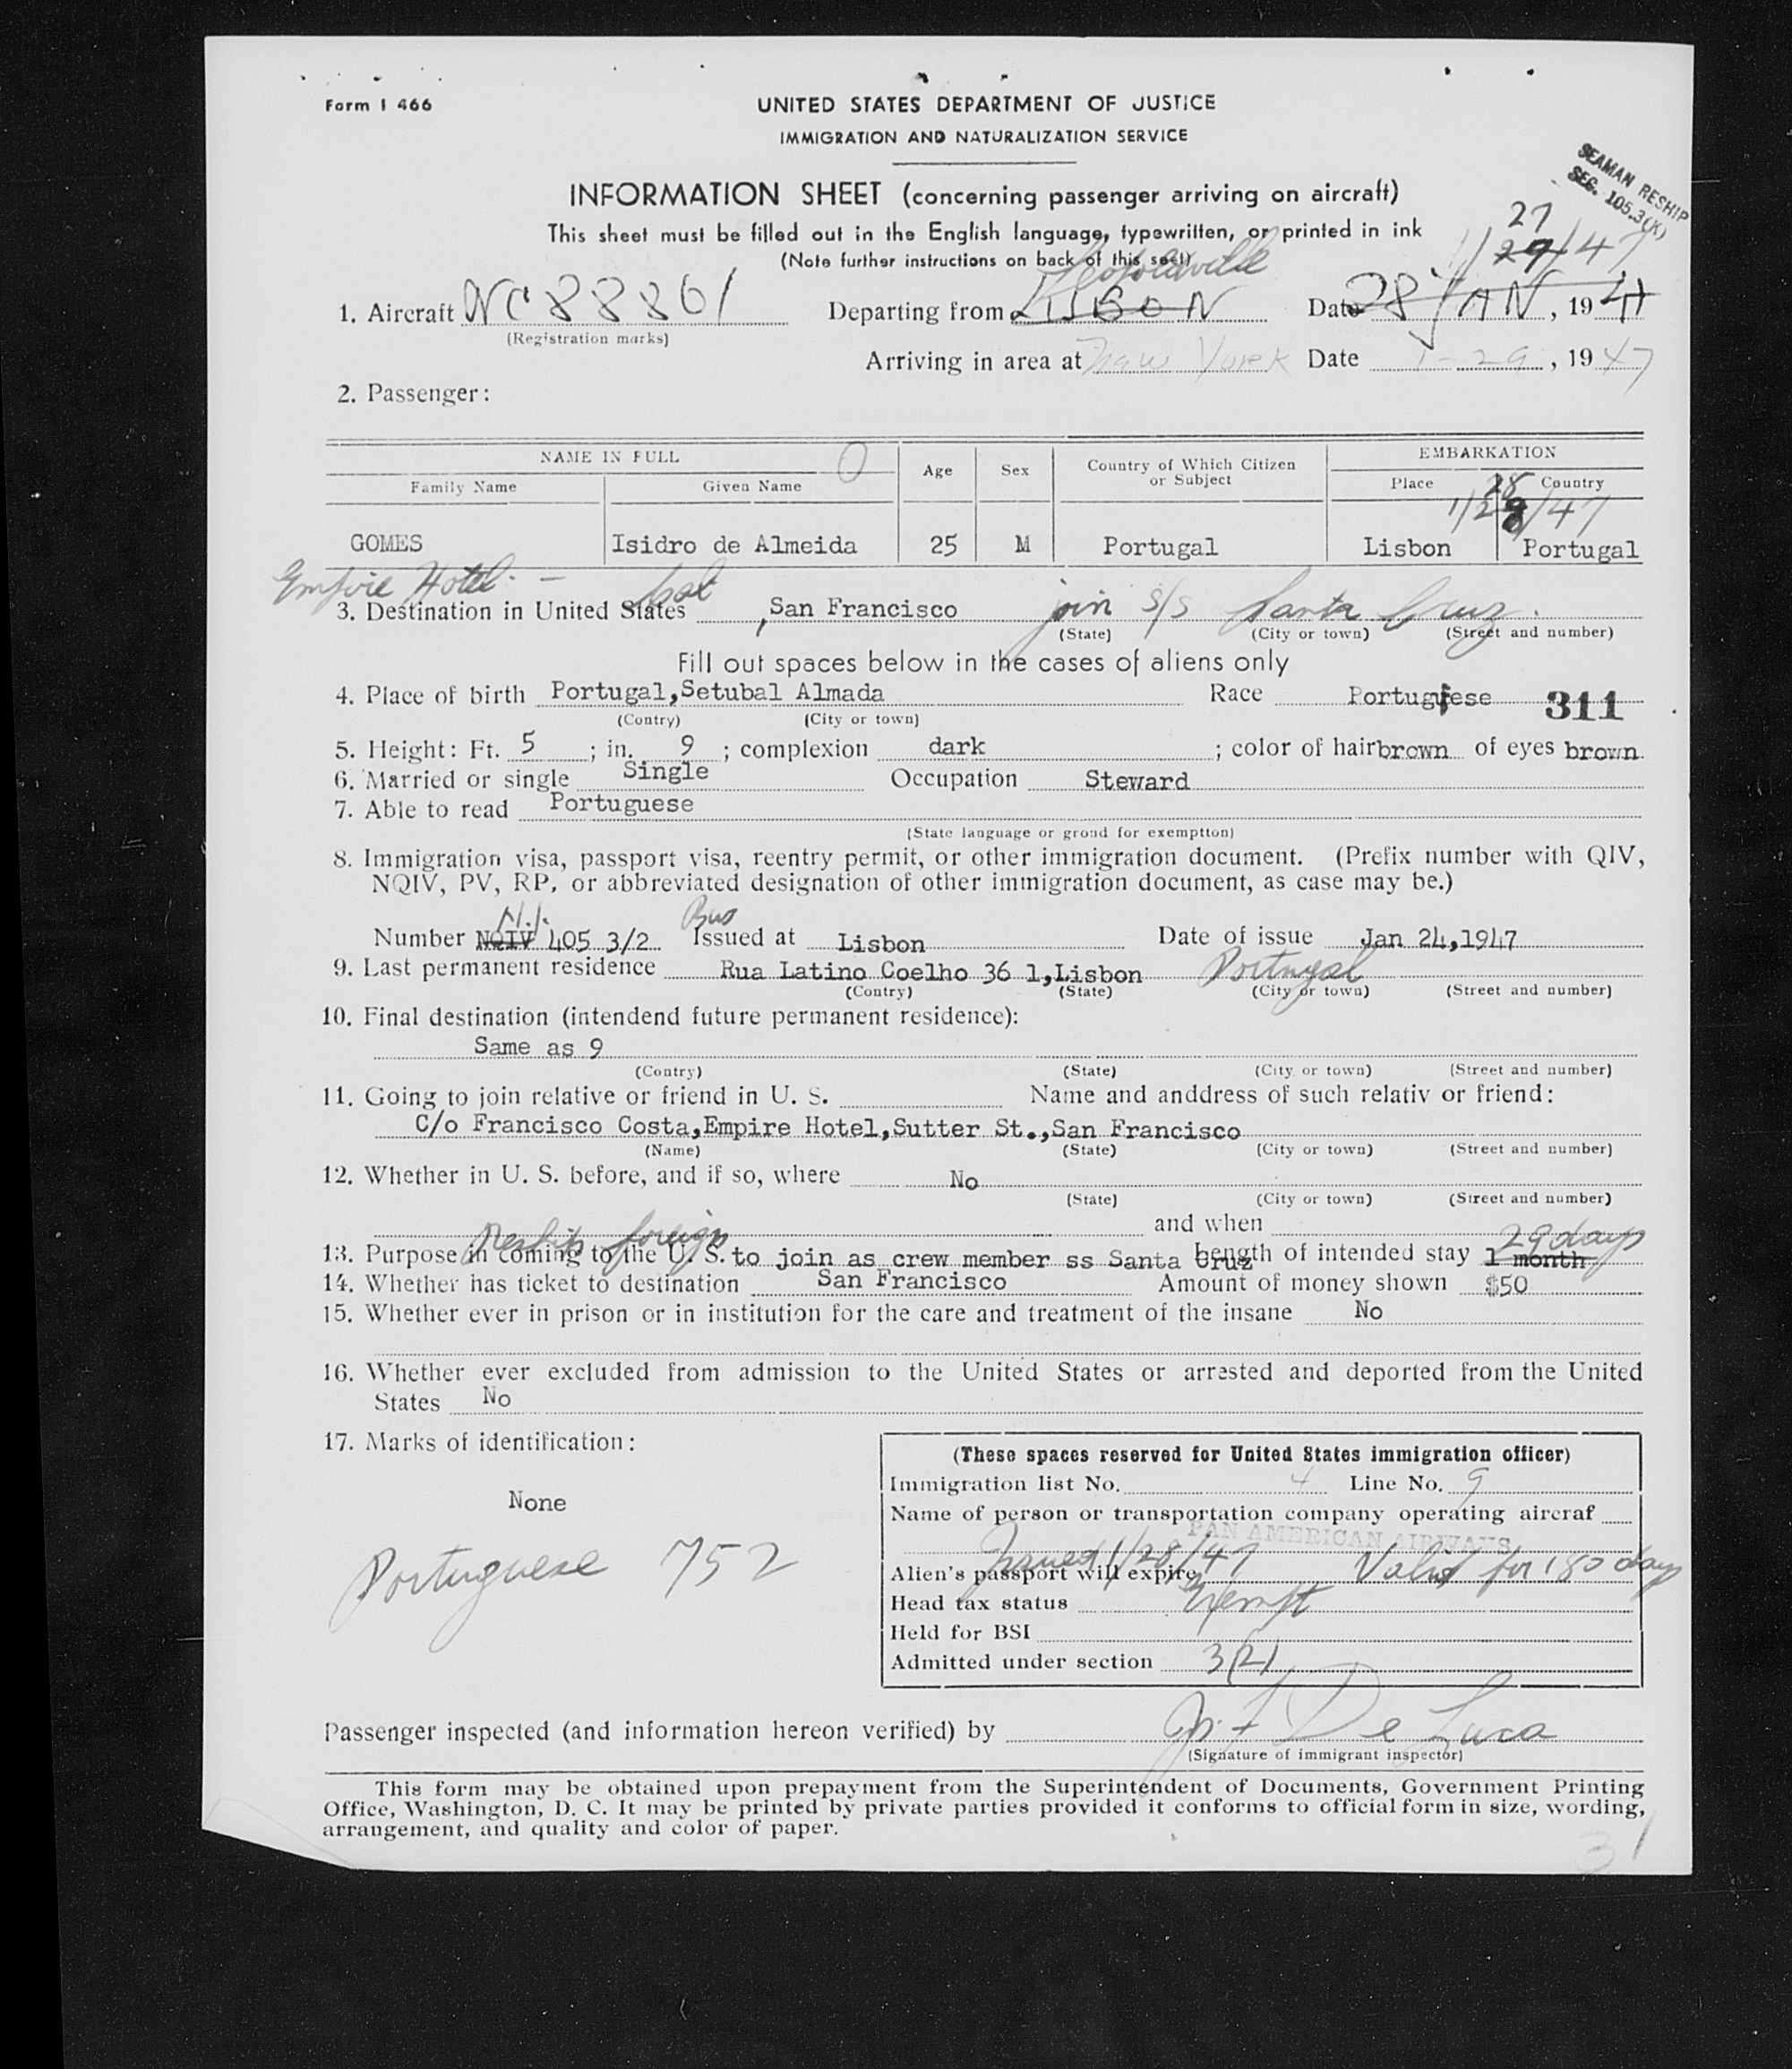 Form I 466
UNITED STATES DEPARTMENT OF JUSTICE
IMMIGRATION AND NATURALIZATION SERVICE
SEAMAN RESHIP
SEC. 105.3(K)
INFORMATION SHEET (concerning passenger arriving on aircraft)
This sheet must be filled out in the English language, typewritten, or printed in ink
27
(Note further instructions on back of this seet)
1/29/47
Leopoldville
1. Aircraft NC 88861 Departing from LISBON Date 28 JAN, 1947
(Registration marks)
Arriving in area at New York Date 1-29, 1947
2. Passenger:
NAME IN FULL Age Sex Country of Which Citizen or Subject EMBARKATION
Family Name Given Name Place Country
28
1/29/47
GOMES Isidro de Almeida 25 M Portugal Lisbon Portugal
Empire Hotel.
3. Destination in United States Cal , San Francisco join S/S Santa Cruz.
(State) (City or town) (Street and number)
Fill out spaces below in the cases of aliens only
4. Place of birth Portugal,Setubal Almada Race Portuguese 311
(Contry) (City or town)
5. Height: Ft. 5 ; in. 9 ; complexion dark ; color of hair brown of eyes brown
6. Married or single Single Occupation Steward
7. Able to read Portuguese
(State language or groud for exemptton)
8. Immigration visa, passport visa, reentry permit, or other immigration document. (Prefix number with QIV,
NQIV, PV, RP, or abbreviated designation of other immigration document, as case may be.)
Number NQIV 405 3/2 Issued at Lisbon Date of issue Jan 24,1947
9. Last permanent residence Rua Latino Coelho 36 1,Lisbon Portugal
(Contry) (State) (City or town) (Street and number)
10. Final destination (intendend future permanent residence):
Same as 9
(Contry) (State) (City or town) (Street and number)
11. Going to join relative or friend in U. S. Name and anddress of such relativ or friend:
C/o Francisco Costa,Empire Hotel,Sutter St.,San Francisco
(Name) (State) (City or town) (Street and number)
12. Whether in U. S. before, and if so, where No
(State) (City or town) (Street and number)
and when
Reship foreign 29 days
13. Purpose in coming to the U. S. to join as crew member ss Santa Cruz Length of intended stay 1 month
14. Whether has ticket to destination San Francisco Amount of money shown $50
15. Whether ever in prison or in institution for the care and treatment of the insane No
16. Whether ever excluded from admission to the United States or arrested and deported from the United
States No
17. Marks of identification:
None
Portuguese 752
(These spaces reserved for United States immigration officer)
Immigration list No. 4 Line No. 9
Name of person or transportation company operating aircraf
PAN AMERICAN AIRWAYS
Issued 1/28/47 Valid for 180 days
Alien's passport will expire
Head tax status Exempt
Held for BSI
Admitted under section 3(2)
Passenger inspected (and information hereon verified) by De Luca
(Signature of immigrant inspector)
This form may be obtained upon prepayment from the Superintendent of Documents, Government Printing
Office, Washington, D. C. It may be printed by private parties provided it conforms to official form in size, wording,
arrangement, and quality and color of paper.
31